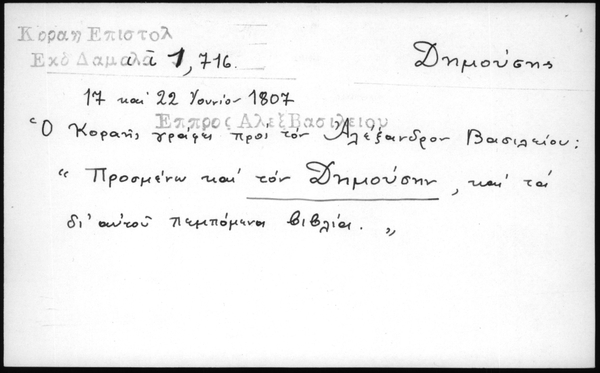 Κοραη Επιστολ
Εκδ Δαμαλα αᾶ 1, 716.
Δημούσης
17 καί 22 Ἰουνίου 1807
Επ προς Αλεξ Βασιλειου
Ὁ Κοραῆς γράφει πρός τόν Ἀλέξανδρον Βασιλείου:
“ Προσμένω καί τόν Δημούσην, καί τά
δι' αὐτοῦ πεμπόμενα βιβλία. „